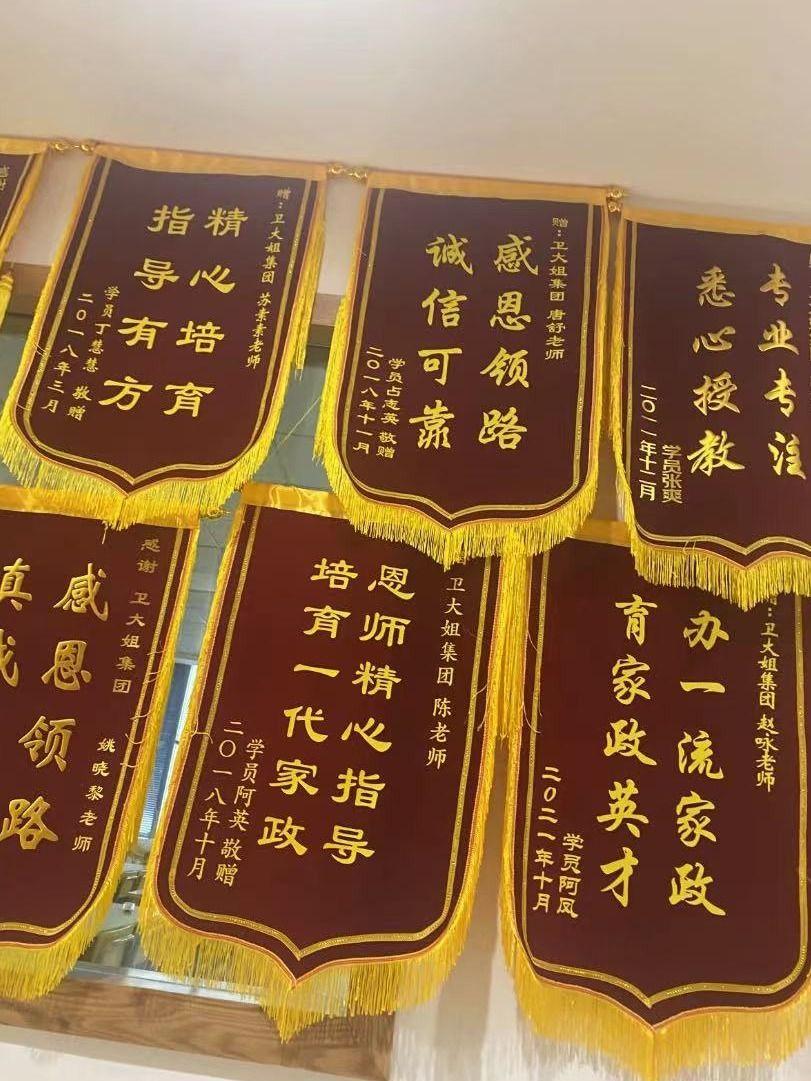 感谢
赠：卫大姐集团 苏素素老师
精心培育
指导有方
学员丁慧慧 敬赠
二〇一八年三月
赠：卫大姐集团 唐舒老师
感恩领路
诚信可靠
学员占志英 敬赠
二〇一八年十一月
专业专注
悉心授教
学员张爽
二〇二一年十二月
感谢 卫大姐集团
姚晓黎老师
感恩领路
真诚
卫大姐集团 陈老师
恩师精心指导
培育一代家政
学员阿英 敬赠
二〇一八年十月
：卫大姐集团 赵咏老师
办一流家政
育家政英才
学员阿凤
二〇二一年十月